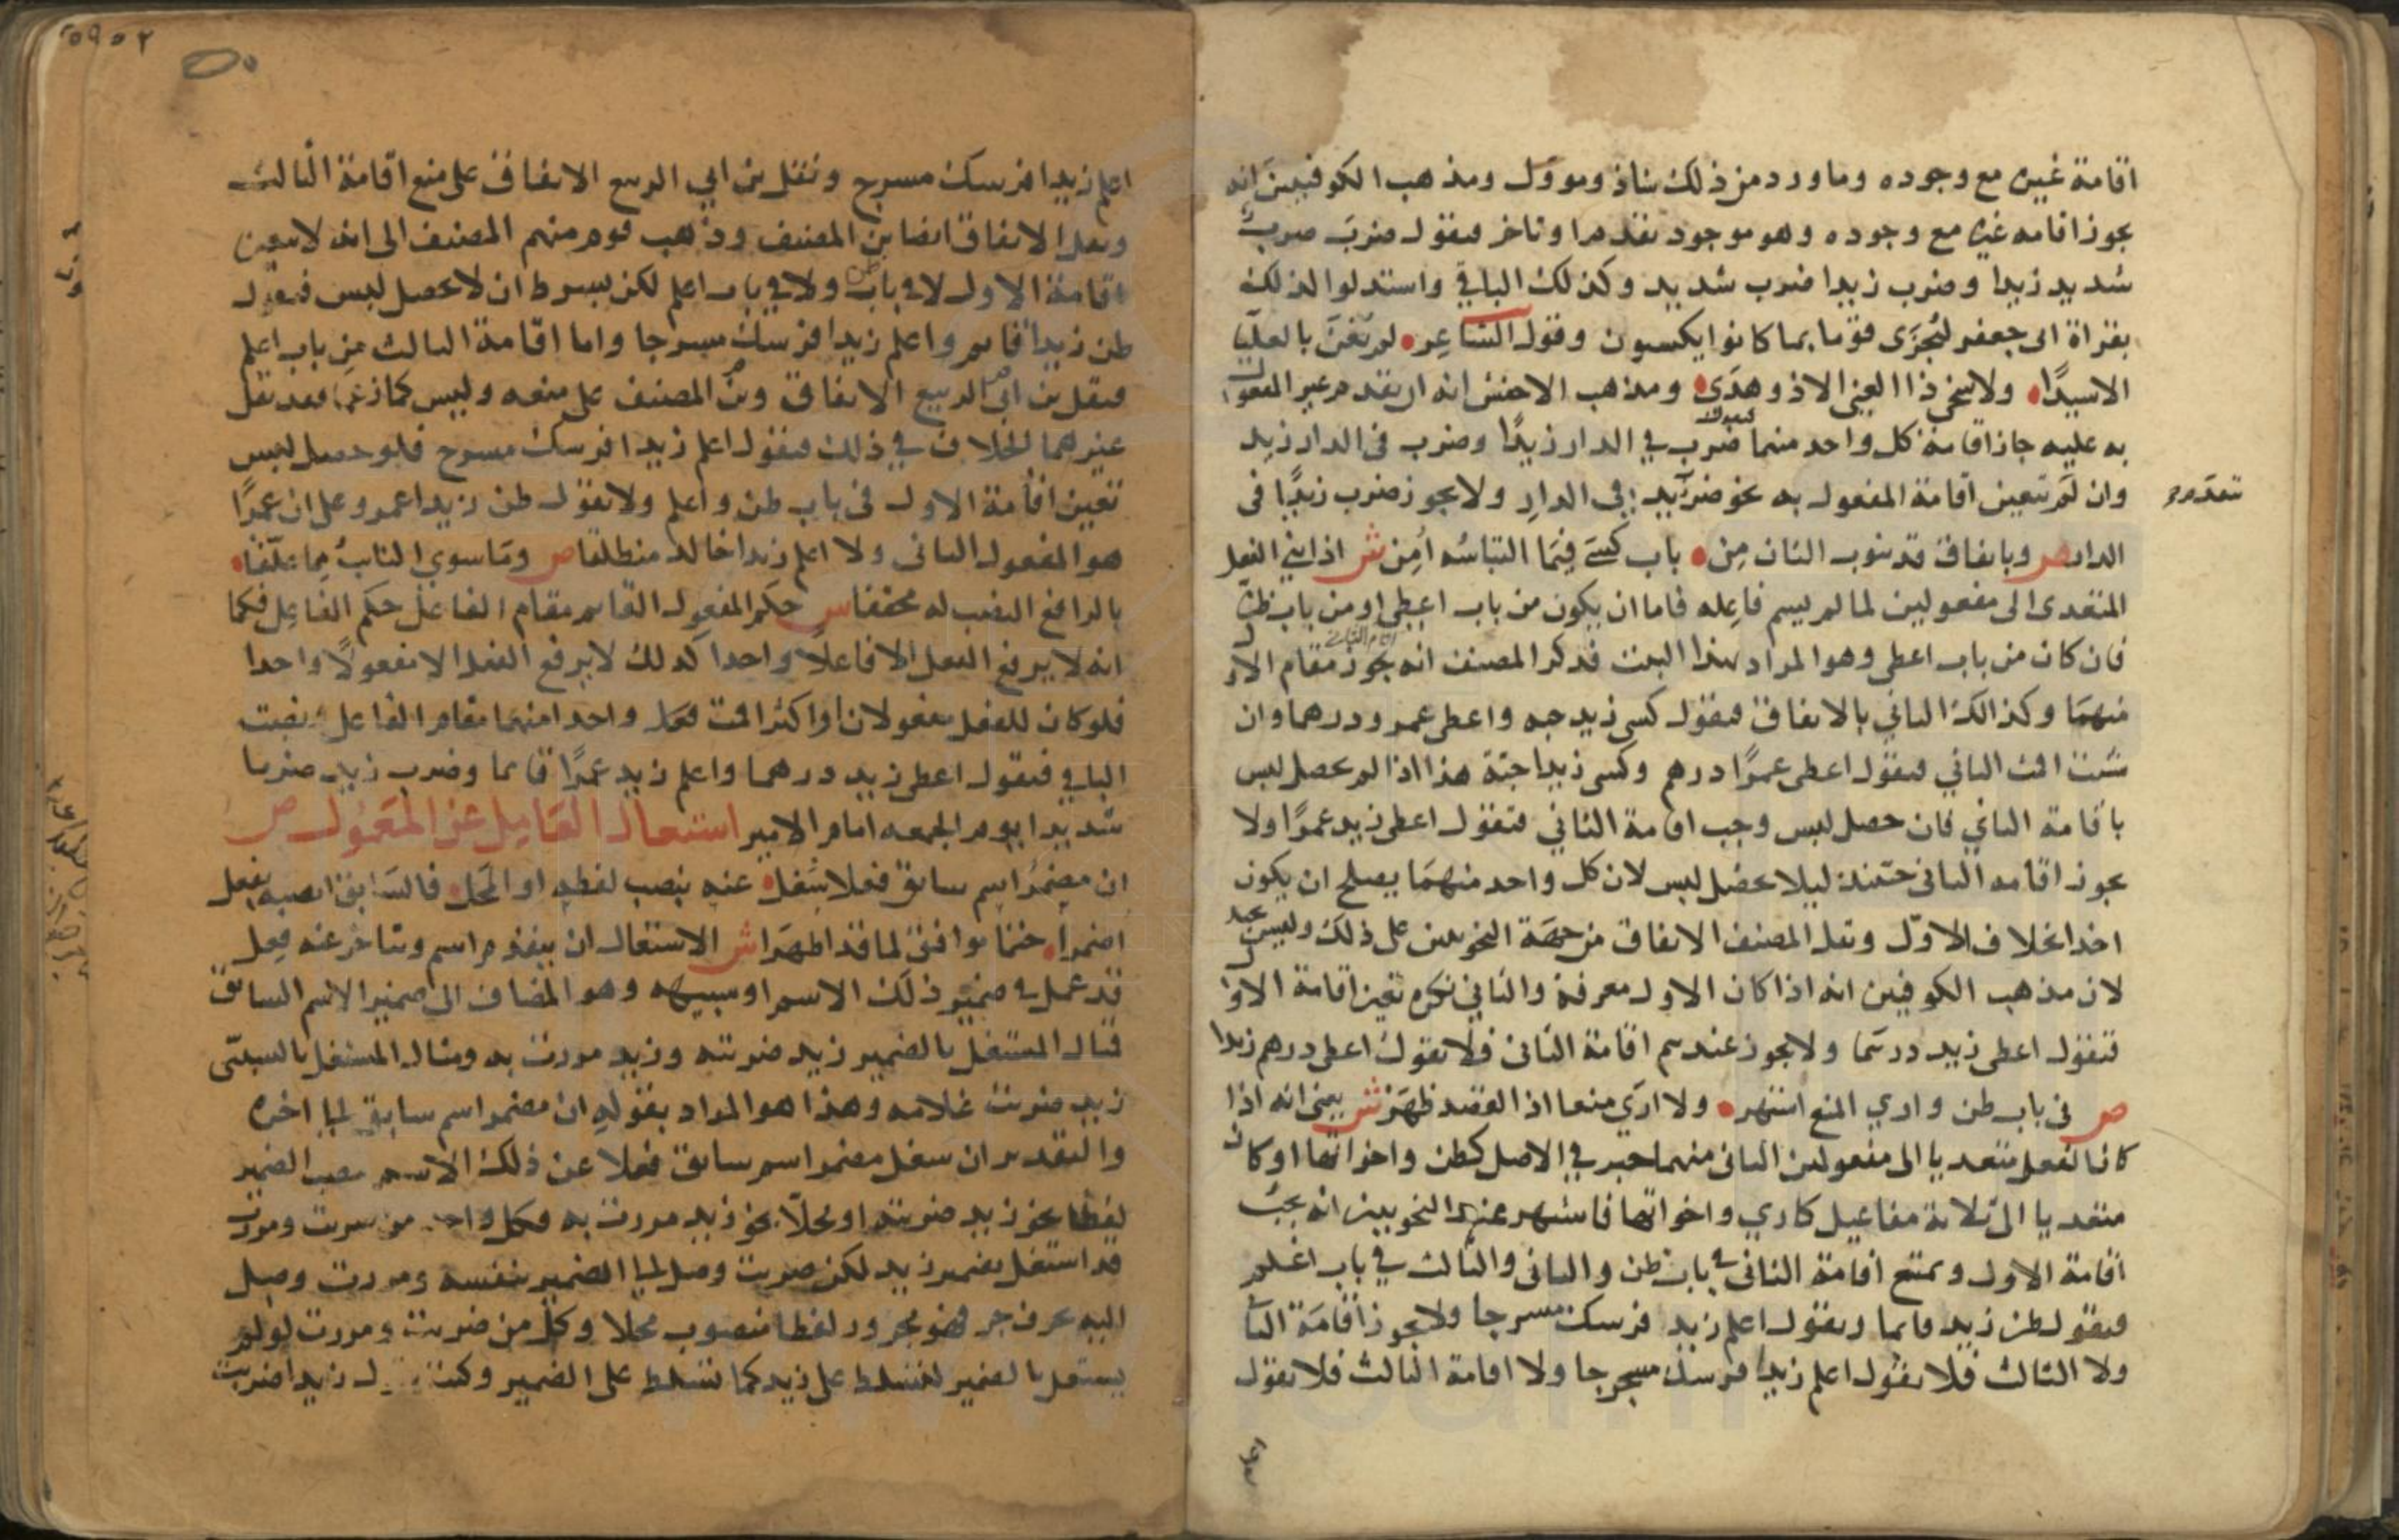 اقامة غيره مع وجوده وما ورد من ذلك شاذ ومووّل ومذهب الكوفيين انه
يجوز اقامه غيره مع وجوده وهو موجود تقدم او تاخر فيقول ضرب ضربٌ
شديد زيدا وضرب زيدا ضرب شديد وكذلك الباقي واستدلوا لذلك
بقراة ابى جعفر ليُجزَى قوما بما كانوا يكسبون وقول الشاعر لم يُعْنَ بالعليا
الا سيدًا ولا شفى ذا الغي الا ذو هدى ومذهب الاخفش انه ان تقدم غير المفعول
به عليه جاز اقامة كل واحد منهما فيقول ضرب في الدار زيدًا وضرب في الدار زيد
وان لم يتقدم تعين اقامة المفعول به نحو ضرب زيد في الدار ولا يجوز ضرب زيدًا في
الدار ص وباتفاق قد ينوب الثان من باب كسى فيما التباسه أُمِن ش اذا بني الفعل
المتعدى الى مفعولين لما لم يسم فاعله فاما ان يكون من باب اعطى او من باب ظن
فان كان من باب اعطى وهو المراد بهذا البيت فذكر المصنف انه يجوز اقامة الاول
منهما وكذلك الثاني بالاتفاق فيقول كسى زيد جبه واعطى عمرو درهما وان
شئت اقمت الثاني فيقول اعطى عمرًا درهم وكسى زيدا جبّة هذا اذا لم يحصل لبس
باقامة الثاني فان حصل لبس وجب اقامة الثاني فتقول اعطى زيد عمرًا ولا
يجوز اقامه الثانى حينئذ ليلا يحصل لبس لان كل واحد منهما يصلح ان يكون
اخذا بخلاف الاوّل ونقل المصنف الاتفاق من جهة النحويين على ذلك وليس بجيد
لان مذهب الكوفيين انه اذا كان الاول معرفة والثاني نكرة تعين اقامة الاول
فتقول اعطى زيد درهما ولا يجوز عندهم اقامة الثانى فلا تقول اعطى درهم زيدا
ص في باب ظن وارى المنع اشتهر ولا ارى منعا اذا القصد ظهر ش يعني انه اذا
كان الفعل متعديا الى مفعولين الثانى منهما خبر في الاصل كظن واخواتها او كان
متعديا الى ثلاثة مفاعيل كاري واخواتها فاشتهر عند النحويين انه يجب
اقامة الاول ويمتنع اقامة الثانى في باب ظن والثانى والثالث في باب اعلم
فيقول ظن زيد قايما ويقول اعلم زيد فرسك مسرجا ولا يجوز اقامة الثاني
ولا الثالث فلا تقول اعلم زيدا فرسك مسرجا ولا اقامة الثالث فلا تقول
اعلم زيدا فرسك مسرج ونقل بن ابي الربيع الاتفاق على منع اقامة الثالث
ونقل الاتفاق ايضا بن المصنف وذهب قوم منهم المصنف الى انه لا يتعين
اقامة الاول لا في باب ظن ولا في باب اعلم لكن يشترط ان لا يحصل لبس فيقول
ظن زيدا قايم واعلم زيدا فرسك مسرجا واما اقامة الثالث من باب اعلم
فنقل بن ابى الربيع الاتفاق وبن المصنف على منعه وليس كما زعما فقد نقل
غيرهما الخلاف في ذلك فيقول اعلم زيدا فرسك مسرج فلو حصل لبس
تعين اقامة الاول في باب ظن واعلم ولا تقول ظن زيدا عمرو على ان عمرًا
هو المفعول الثانى ولا اعلم زيدا خالد منطلقا ص وما سوى النائب مما علّقا
بالرافع النصب له محققا ش حكم المفعول القايم مقام الفاعل حكم الفاعل فكما
انه لا يرفع الفعل الا فاعلًا واحدا كذلك لا يرفع الفعل الا مفعولًا واحدا
فلو كان للفعل مفعولان او اكثر اقمت واحدا منهما مقام الفاعل ونصبت
الباقي فيقول اعطى زيد درهما واعلم زيد عمرًا قايما وضرب زيد ضربا
شديدا يوم الجمعه امام الامير اشتغال العامل عن المعمول ص
ان مضمر اسم سابق فعلا شغل عنه بنصب لفظه او المحل فالسابق انصبه بفعل
اضمرا حتما موافق لما قد اظهرا ش الاشتغال ان يتقدم اسم ويتاخر عنه فعل
قد عمل في ضمير ذلك الاسم او سببيه وهو المضاف الى ضمير الاسم السابق
فمثال المشتغل بالضمير زيد ضربته وزيد مررت به ومثال المشتغل بالسببى
زيد ضربت غلامه وهذا هو المراد بقوله ان مضمر اسم سابق الى اخره
والتقدير ان شغل مضمر اسم سابق فعلا عن ذلك الاسم بنصب الضمير
لفظا نحو زيد ضربته او محلّا نحو زيد مررت به فكل واحد من ضربت ومررت
قد اشتغل بضمير زيد لكن ضربت وصل الى الضمير بنفسه ومررت وصل
اليه بحرف جر فهو مجرور لفظا منصوب محلا وكل من ضربت ومررت لو لم
يشتغل بالضمير لتسلط على زيد كما تسلط على الضمير وكنت تقول زيدا ضربت